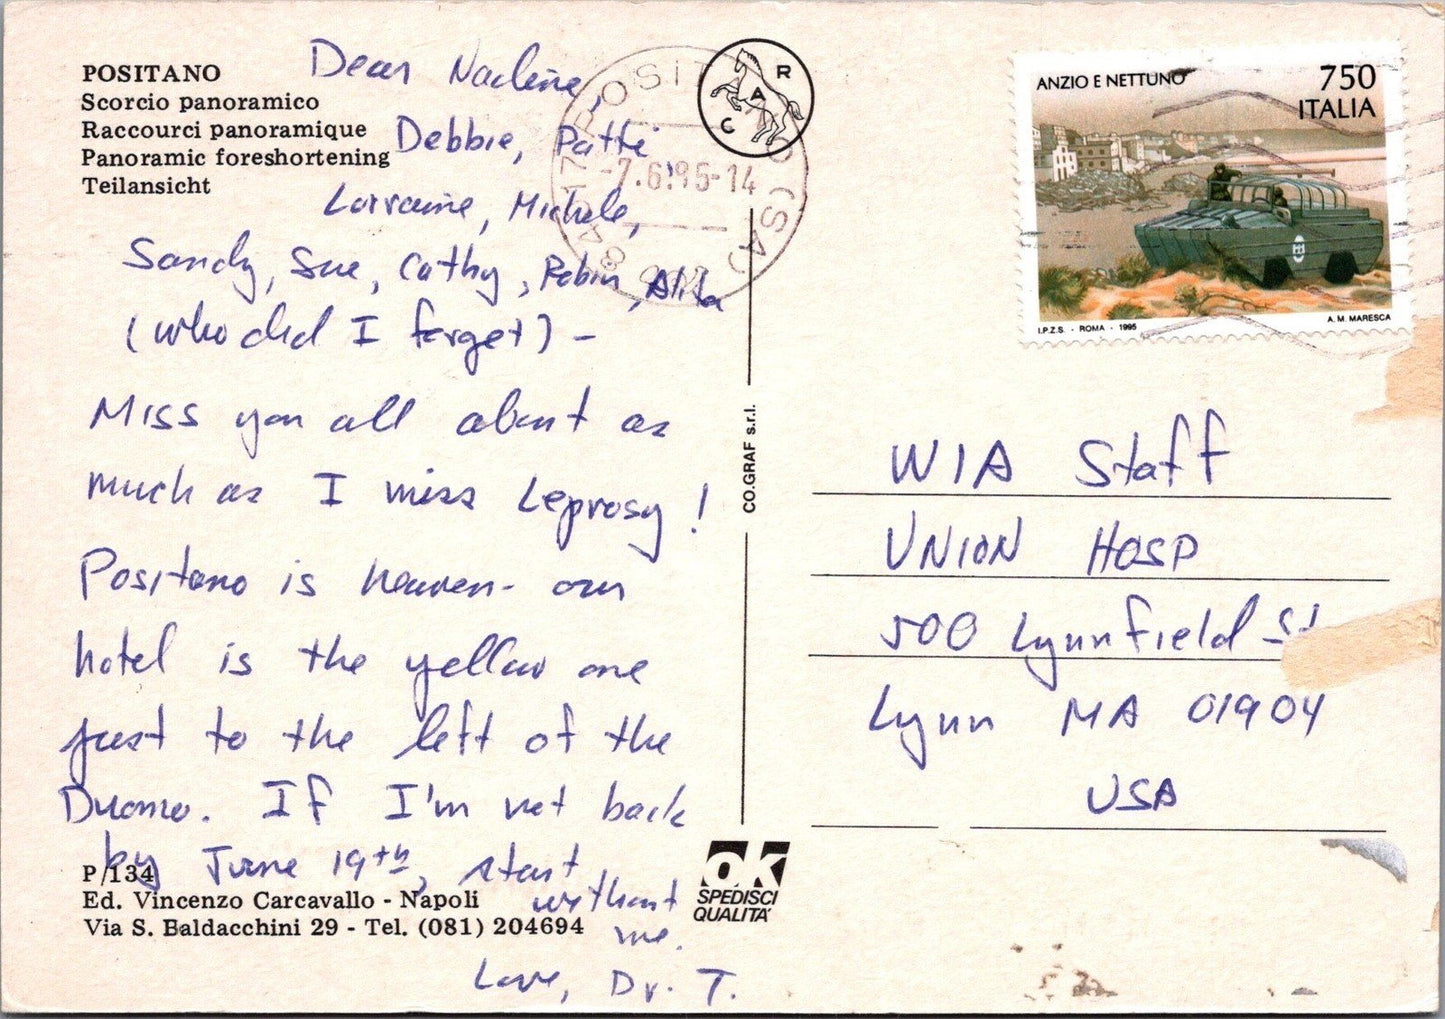 POSITANO
Scorcio panoramico
Raccourci panoramique
Panoramic foreshortening
Teilansicht
Dear Nadine,
Debbie, Patti
Lorraine, Michele,
Sandy, Sue, Cathy, Robin, Alita
(who did I forget) -
Miss you all about as
much as I miss Leprosy!
Positano is heaven - our
hotel is the yellow one
just to the left of the
Duomo. If I'm not back
by June 19th, start
without
me.
Love, Dr. T.
P/134
Ed. Vincenzo Carcavallo - Napoli
Via S. Baldacchini 29 - Tel. (081) 204694
CO.GRAF s.r.l.
OK
SPEDISCI
QUALITA'
R
A
C
POSITANO (SA)
84017
-7.6.95-14
ANZIO E NETTUNO
750
ITALIA
I.P.Z.S. - ROMA - 1995
A. M. MARESCA
WIA Staff
UNION HOSP
500 Lynnfield St
Lynn MA 01904
USA